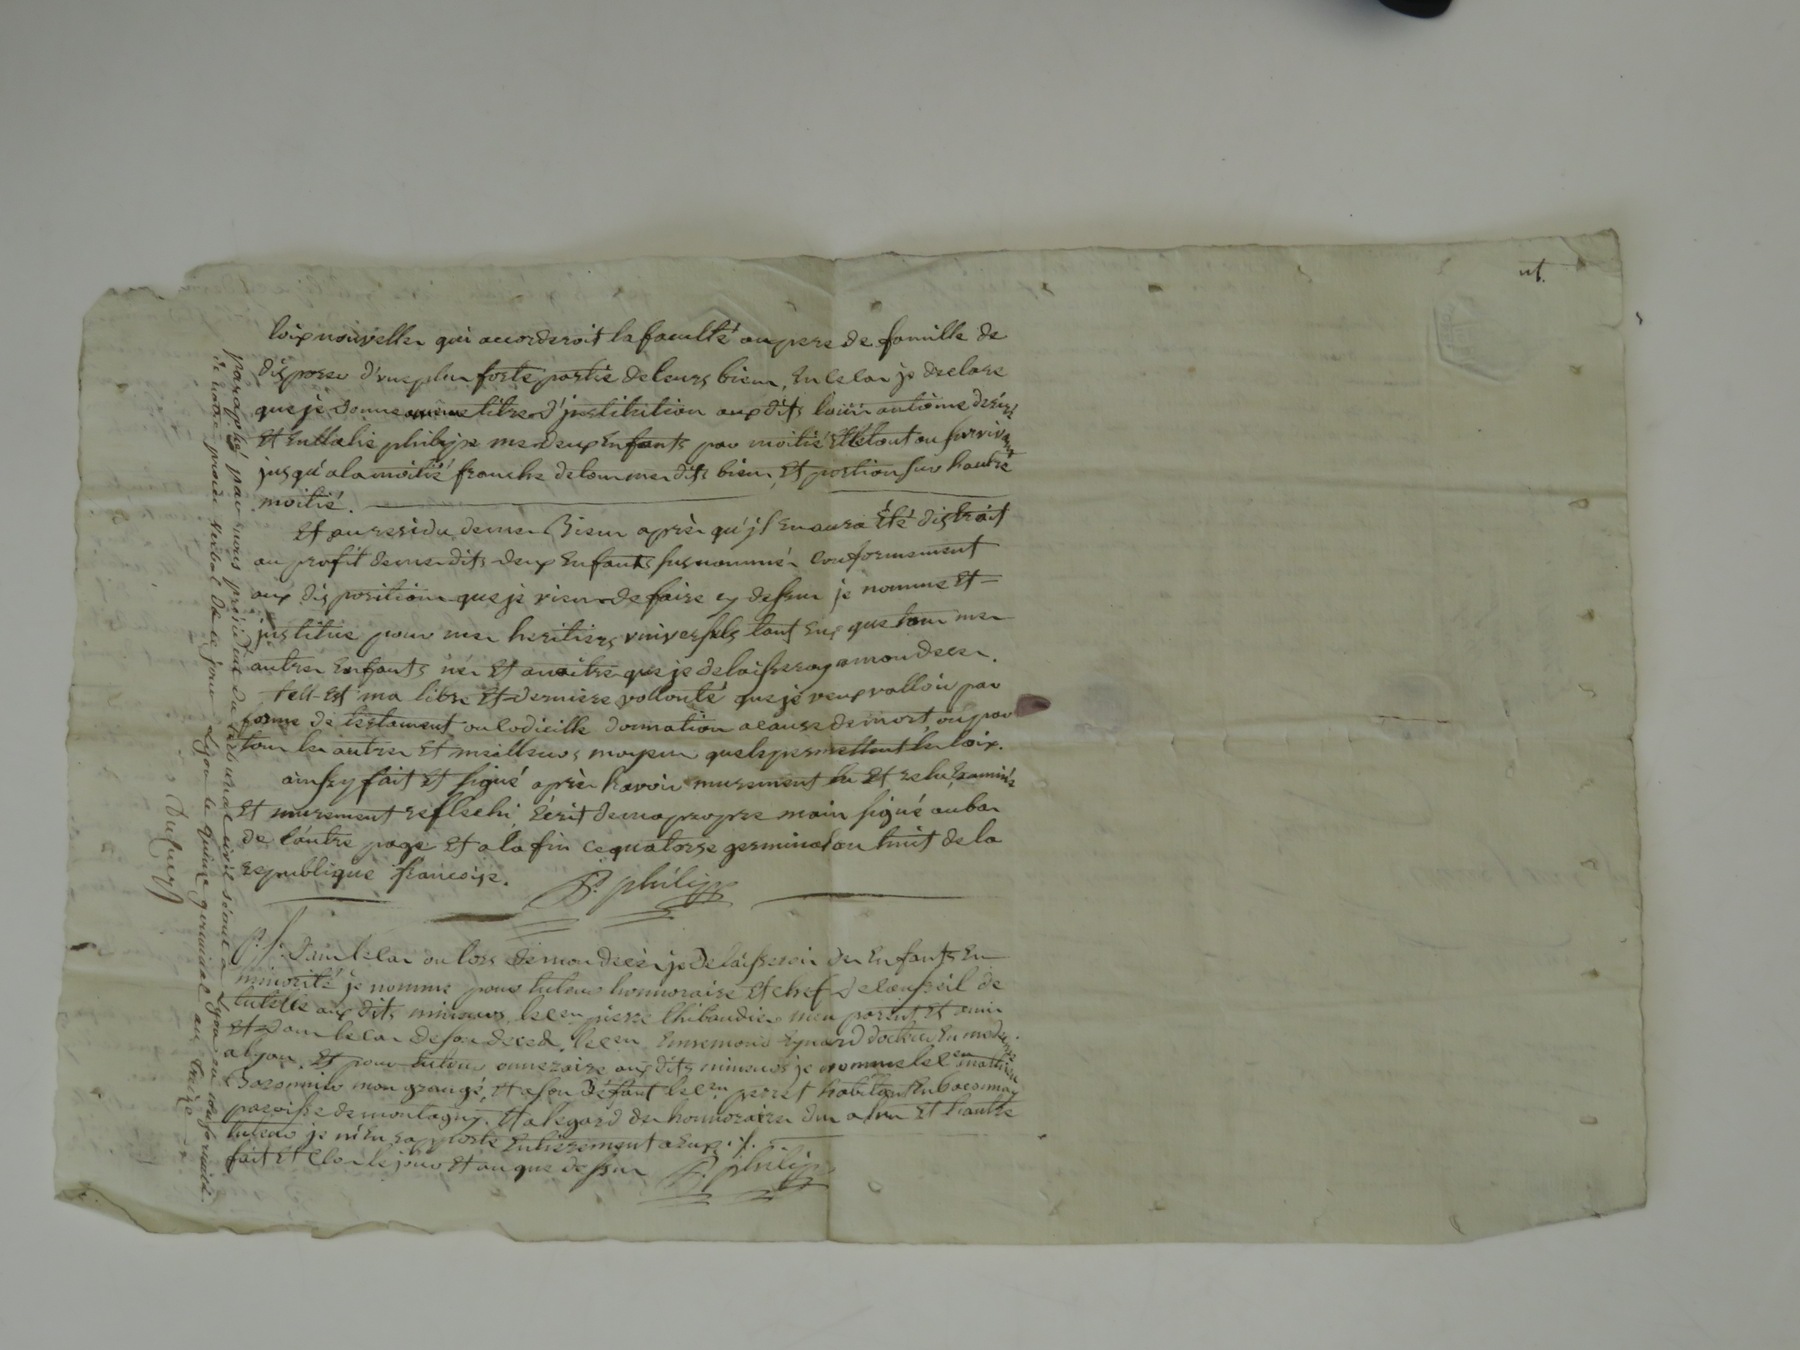 loix nouvelles qui accorderoit la faculté au pere de famille de
disposer d'une plus forte partie de leurs biens, en ce cas je declare
que je donne a même titre d'institution aux dits louis antoine desiré
et Eullalie philippe mes deux enfants par moitié et le tout au survivant
jusqu'a la moitié franche de tous mes dits biens, et portion sur l'autre
moitié.
Et au residu de mes Biens après qu'il en aura été distrait
au profit de mes dits deux enfants susnommés conformement
aux dispositions que je viens de faire cy dessus je nomme et
institue pour mes heritiers universels tant eux que tous mes
autres enfants nés et a naitre que je delaisseray a mon deces.
telle Est ma libre et derniere vollonté que je veux valloir par
forme de testament, ou codicille donnation a cause de mort ou par
tous les autres et meilleurs moyens que le permettent les loix.
ainsy fait et signé après l'avoir murement lu et relu, Examiné
et murement reflechi, écrit de ma propre main signé au bas
de l'autre page et a la fin ce quatorze germinal an huit de la
republique francoise. P. philipp
P. S. Dans le cas ou lors de mon decès je delaisserois des enfants en
minorité je nomme pour tuteur honnoraire et chef de conseil de
tutelle aux dits mineurs, le c.en pierre thibaudier mon parent et ami
et dans le cas de son deces, le c.en Ennemond Eynard docteur en medecine
a lyon, et pour tuteur onneraire aux dits mineurs je nomme le c.en mathieu
mon grangé, et a son défaut le c.en perret habitant
paroisse de montagny. Et a l'egard des honnoraires dus a l'un et l'autre
tuteur je m'en rapporte Entierement a Eux ./.
fait et clos le jour et an que dessus P. philipp
paraphé par nous président du tribunal civil séant à Lyon en conformité
de notre procès verbal de ce jour Lyon le quinze germinal an treize
Dufeugs